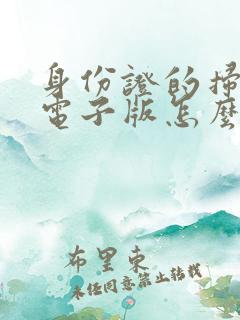 身份證的掃
電子版怎麼
布里東
未經同意禁止轉載